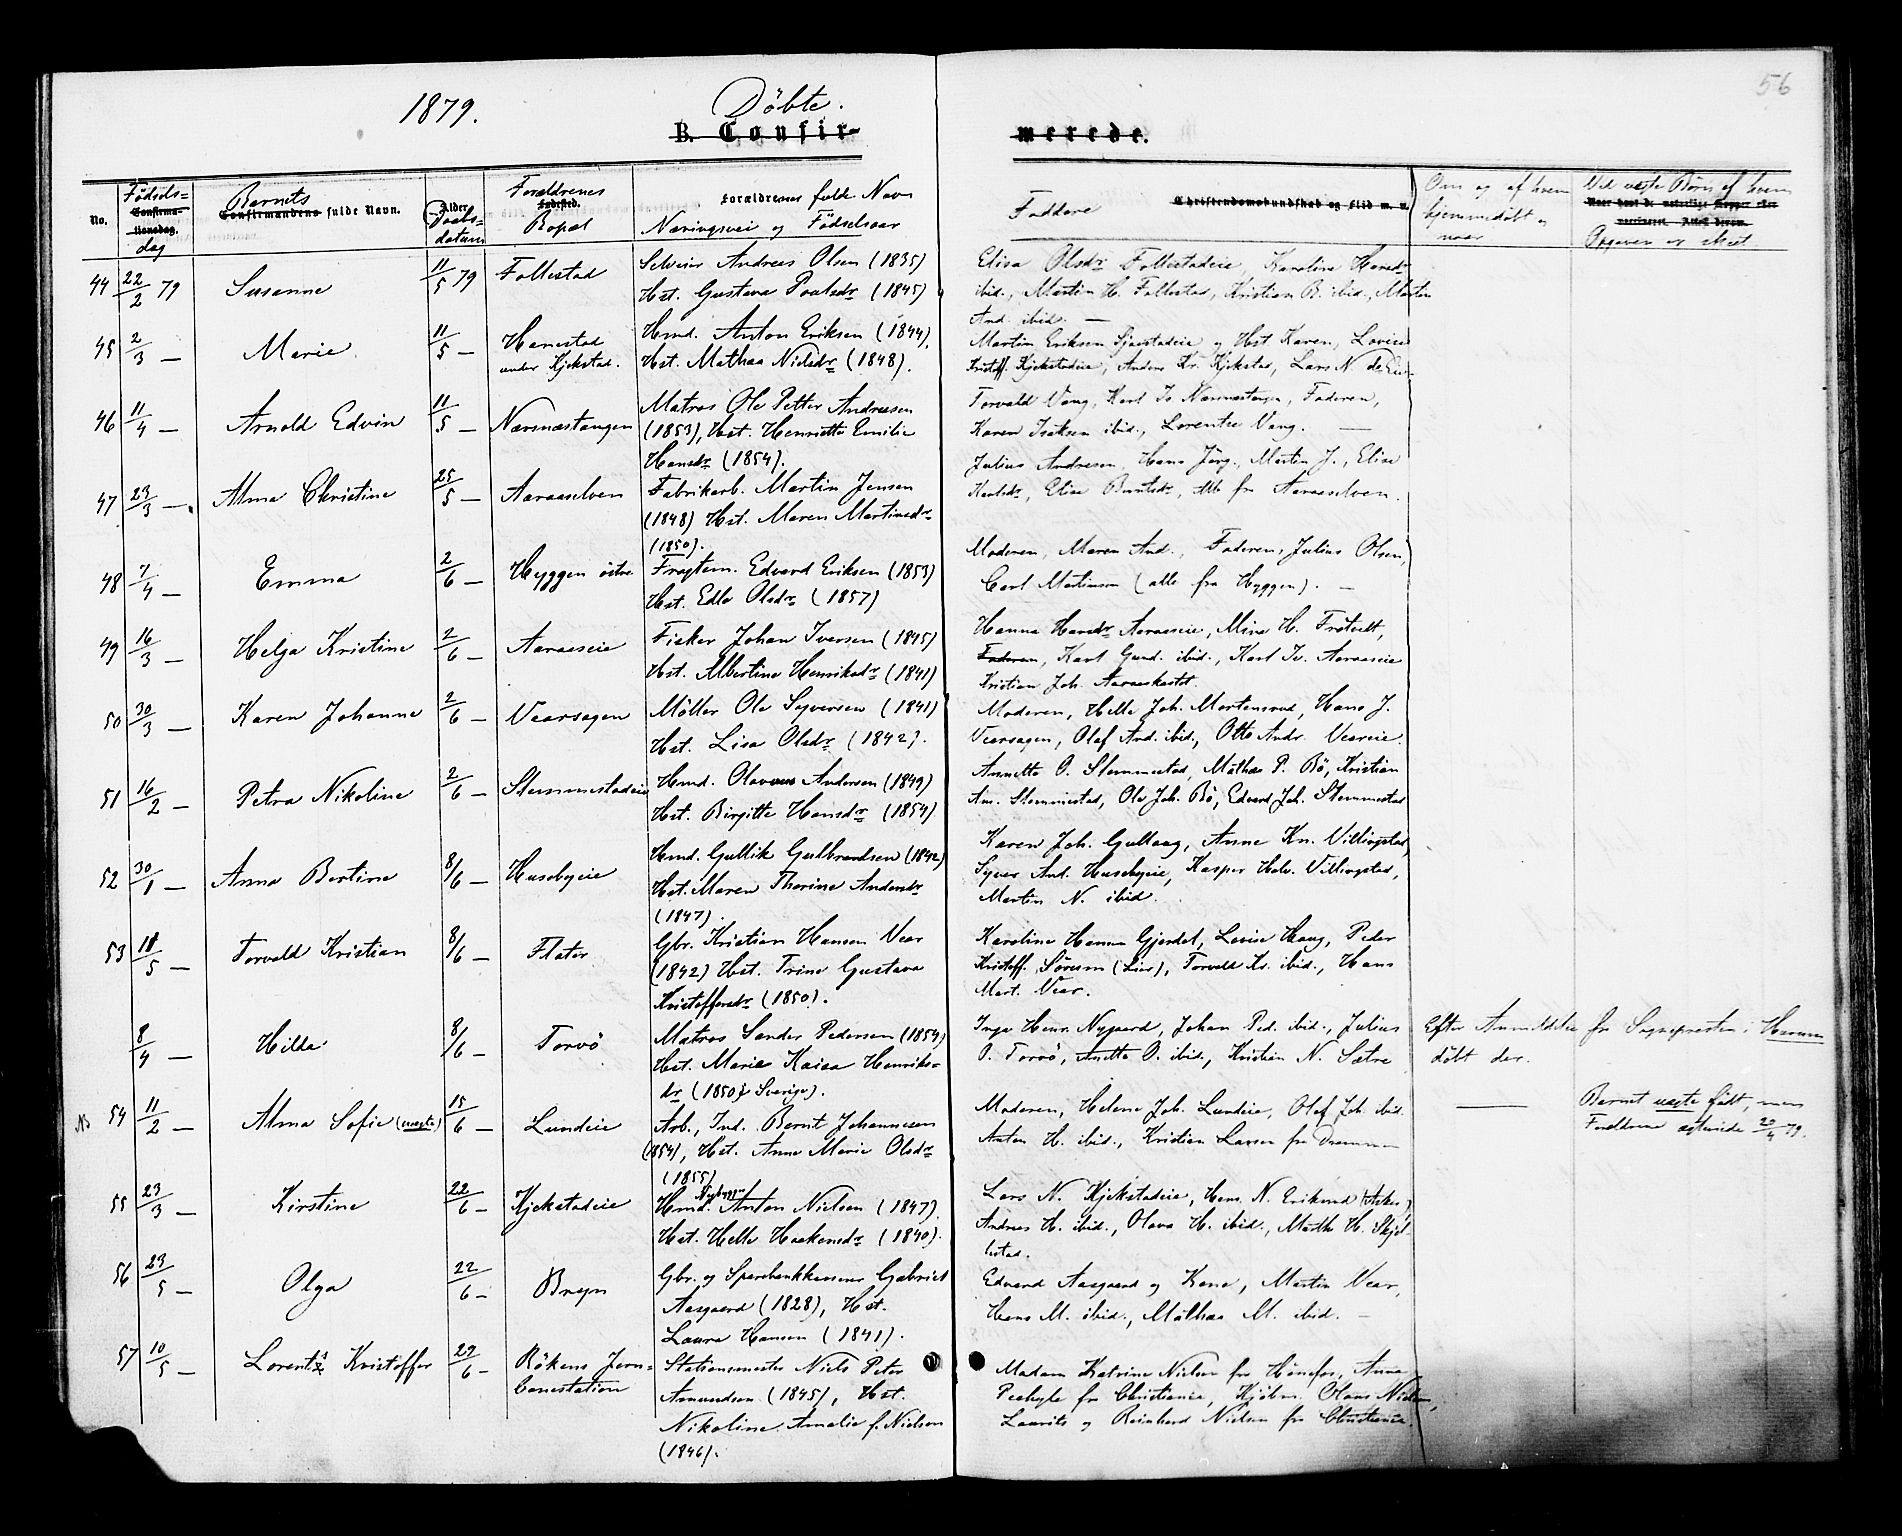 56
1879. Döbte.
B. Confir- merede.
No. Fødsels- Confirma- tionsdag. dag Barnets Confirmandens fulde Navn. Alder. Daabs- datum Forældrenes Fødested. Bopæl Forældrenes fulde Navn Næringsvei og Fødselsaar Faddere Christendomskundskab og Flid m. v. Om og af hvem hjemmedöbt og naar Ved uægte Børn af hvem Opgaven er skeet
44 22/2 79 Susanne 11/5 79 Follestad Selveier Andreas Olsen (1835)
Hst. Gustava Paulsdr (1845)
Elisa Olsdr Follestadeie, Karoline Hansdr
ibid., Martin H. Follestad, Kristian B. ibid., Marten
And. ibid. —
45 2/3 — Marie 11/5 — Hanestad
under Kjekstad.
Hmd. Anton Eriksen (1844),
Hst. Mathea Nielsdr (1848).
Martin Eriksen Gjerstadeie og Hst Karen, Lovise
Kristoff. Kjekstadeie, Anders Kr. Kjekstad, Lars N.
46 11/4 — Arnold Edvin 11/5 — Nærsnæstangen
Matros Ole Petter Andresen
(1853), Hst. Henriette Emilie
Hansdr (1854).
Torvald Vang, Karl Iv. Nærsnæstangen, Faderen,
Karen Isaksen ibid., Lorentse Vang. —
47 23/3 — Alma Christine 25/5 — Aaraaselven
Fabrikarb. Martin Jensen
(1848) Hst. Maren Martinsdr
(1850).
Julius Andresen, Hans Jörg., Martin J., Elise
Karlsdr, Elise Berntsdr, alle fr Aaraaselven.
48 7/4 — Emma 2/6 — Hyggen östre
Fragtem. Edvard Eriksen (1853)
Hst. Edle Olsdr (1857)
Moderen, Maren And., Faderen, Julius Olsen,
Carl Martinsen (alle fra Hyggen). —
49 16/3 — Helga Kristine 2/6 — Aaraaseie
Fisker Johan Iversen (1845)
Hst. Albertine Henriksdr (1841)
Hanna Hansdr Aaraaseie, Mina H. Frötvedt,
Faderen, Karl Gund. ibid., Karl Iv. Aaraaseie
Kristian Joh. Aaraaskastet.
50 30/3 — Karen Johanne 2/6 — Vearsagen
Möller Ole Syversen (1841)
Hst. Lisa Olsdr (1842).
Moderen, Helle Joh. Mortensrud, Hans J.
Vearsagen, Olaf And. ibid., Otto Andr. Veareie.
51 16/2 — Petra Nikoline 2/6 — Slemmestadeie
Hmd. Olavus Andersen (1849)
Hst. Birgitte Hansdr (1854)
Annette O. Slemmestad, Mathea P. Bö, Kristian
An. Slemmestad, Ole Joh. Bö, Edvard Joh. Slemmestad
52 30/1 — Anna Bertine 8/6 — Husebyeie
Hmd. Gullik Gulbrandsen (1842)
Hst. Maren Thorine Andersdr
(1847).
Karen Joh. Gullaug, Anne Kn. Villingstad,
Syver And. Husebyeie, Kasper Halv. Villingstad,
Martin N. ibid.
53 11/5 — Torvald Kristian 8/6 — Flater
Gbr. Kristian Hansen Vear
(1842) Hst. Trine Gustava
Kristoffersdr (1850).
Karoline Hansen Gjerdal, Lovise Haug, Peder
Kristoff. Sörum (Lier), Torvald Kr. ibid., Hans
Mart. Vear.
8/4 — Hilda 8/6 — Torvö
Matros Sander Pedersen (1854)
Hst. Marie Kaisa Henriks-
dr (1850 i Sverige).
Inga Henr. Nygaard, Johan Ped. ibid., Julius
O. Torvö, Anette O. ibid., Kristian N. Sætre
Efter Anmeldelse fr Sognepresten i Hurum
döbt der.
NB 54 11/2 — Alma Sofie (uægte) 15/6 — Lundeie
Arb., Ind. Bernt Johannesen
(1854), Hst. Anne Marie Olsdr
(1855)
Moderen, Helene Joh. Lundeie, Olaf Joh. ibid.
Anton H. ibid., Kristian Larsen fr Drammen
—
Barnet uægte født, men
Forældrene ægteviede 20/4 79.
55 23/3 — Kirstine 22/6 — Kjekstadeie
Hmd. Anton Nielsen (1847).
Hst. Helle Haakensdr (1840).
Lars N. Kjekstadeie, Hans N. Eriksrud (Asker),
Andreas H. ibid., Olava H. ibid., Marthe H. Skjel-
lestad.
56 23/5 — Olga 22/6 — Bryn
Gbr. og Sparebankkasserer Gabriel
Aasgaard (1828), Hst.
Laura Hansen (1841).
Edvard Aasgaard og Kone, Martin Vear,
Hans M. ibid., Mathea M. ibid. —
57 10/5 — Lorents Kristoffer 29/6 — Rökens Jern-
banestation
Stationsmester Niels Peter
Amundsen (1845), Hst.
Nikoline Amalie f. Nielsen
(1846).
Madam Katrine Nielsen fra Hönefos, Anna
fr Christiania, Kjöbm. Olaus Nielsen,
Laurits og Reinhard Nielsen fra Christiania.